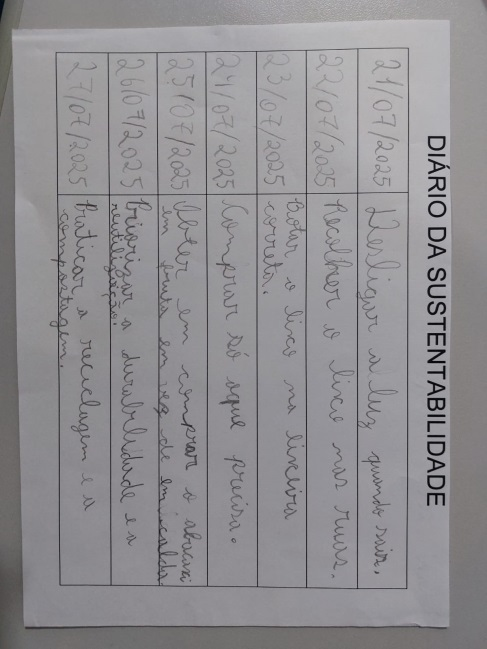 DIÁRIO DA SUSTENTABILIDADE
21/07/2025 Desligar a luz, quando sair.
22/07/2025 Recolher o lixo nas ruas.
23/07/2025 Botar o lixo na lixeira
correta.
24/07/2025 Comprar só oque precisa.
25/07/2025 Obter em comprar o abacaxi
em fruta em vez de em calda
26/07/2025 Priorizar a durabilidade e a
reutilização.
27/07/2025 Praticar a reciclagem e a
compostagem.